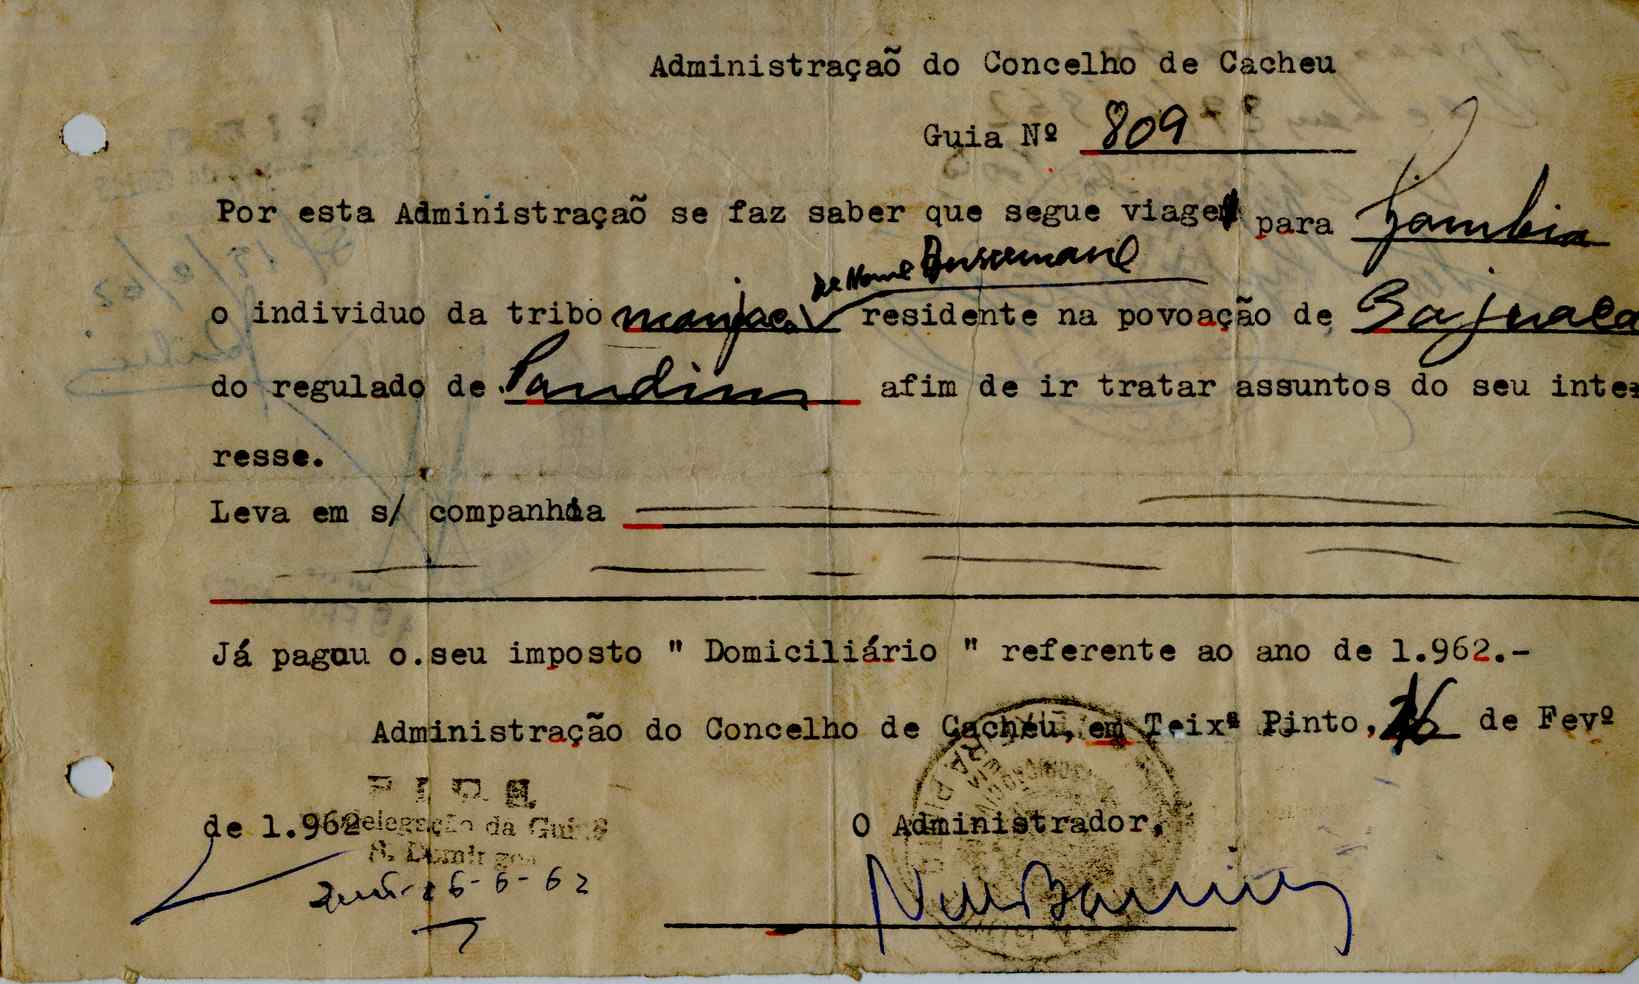 Administraçaõ do Concelho de Cacheu
Guia Nº 809
Por esta Administraçaõ se faz saber que segue viagem para Gambia
de Nome
o individuo da tribo manjaca residente na povoação de
do regulado de Pandim afim de ir tratar assuntos do seu inte-
resse.
Leva em s/ companhia
Já pagou o.seu imposto " Domiciliário " referente ao ano de 1.962.-
Administração do Concelho de Cacheu, em Teixª Pinto, 16 de Fevº
P I D E
de 1.962
Delegação da Guiné
O Administrador,
S. Domingos
26-6-62